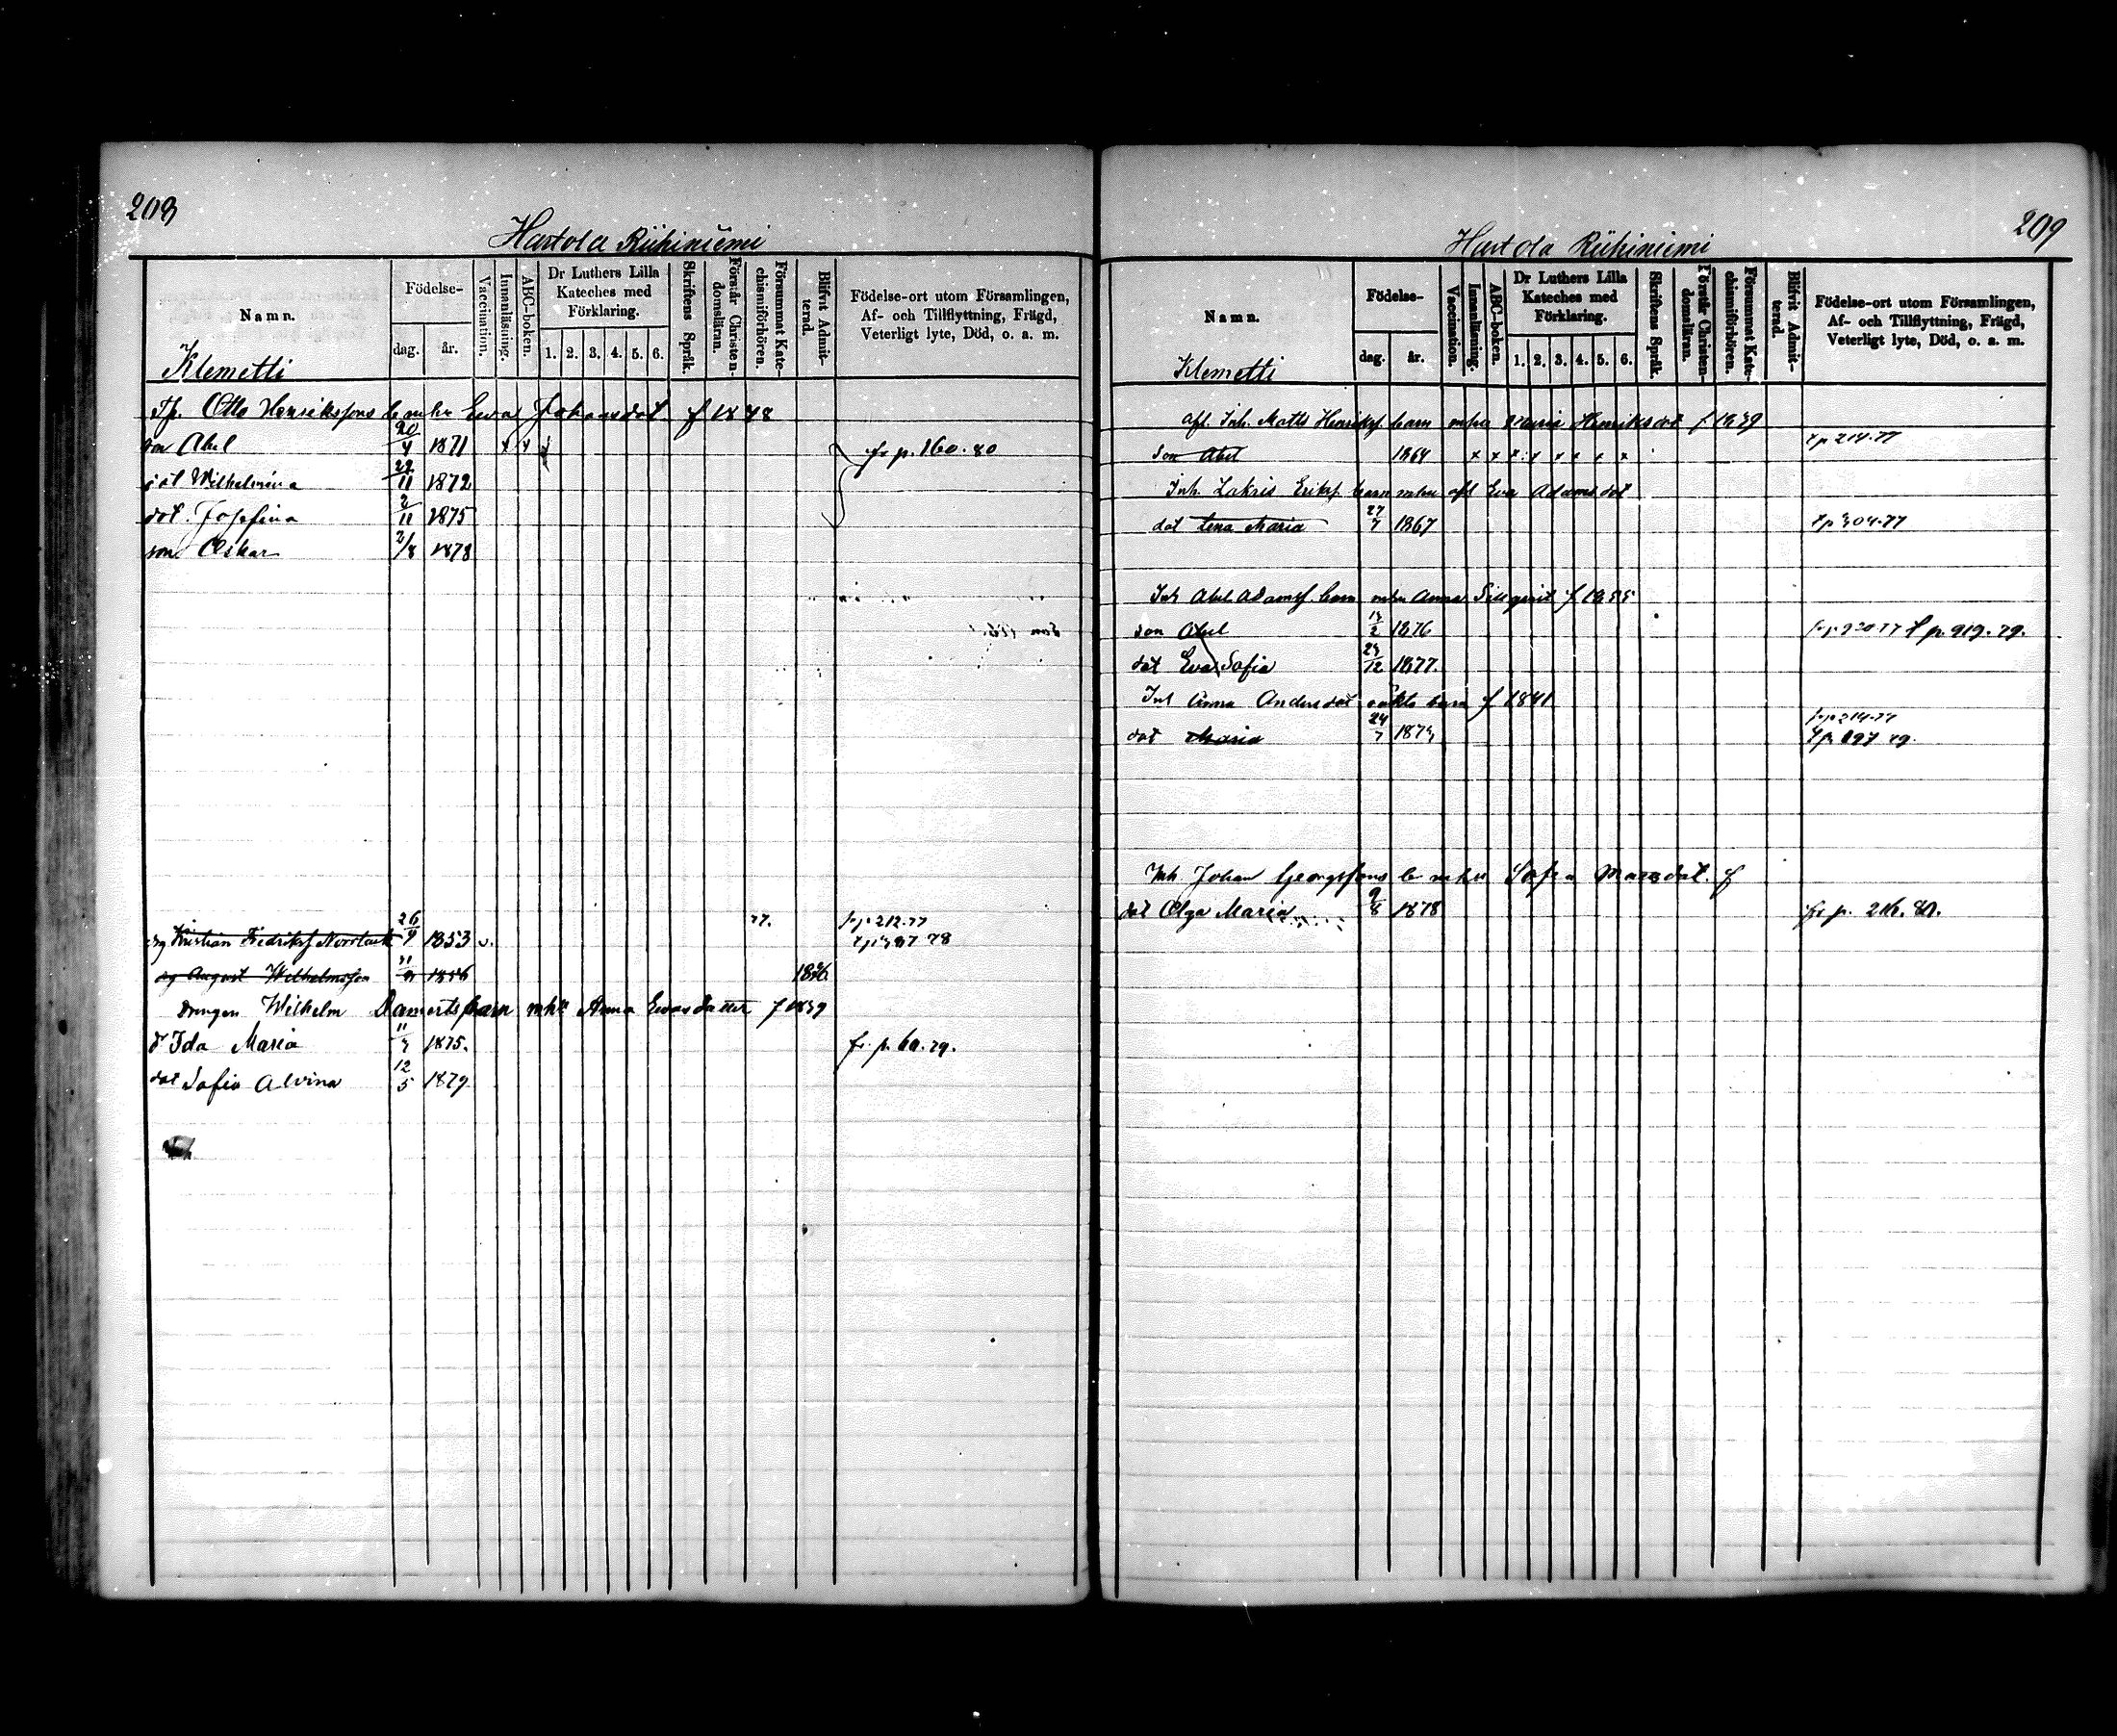 208
Hartola Riihiniemi
Namn.
Födelse-
dag.
år.
Vaccination.
Innanläsning.
ABC-boken.
Dr Luthers Lilla
Kateches med
Förklaring.
1. 2. 3. 4. 5. 6.
Skriftens Språk.
Förstår Christen-
domsläran.
Försummat Kate-
chismiförhören.
Blifvit Admit-
terad.
Födelse-ort utom Församlingen,
Af- och Tillflyttning, Frägd,
Veterligt lyte, Död, o. a. m.
Klemetti
Otto Henrikssons Eva Johansdot. f 1848
son Abel 20/4 1871 x x fr p. 160. 80
dot Wilhelmina 22/11 1872
dot. Josefina 2/11 1875
son Oskar 2/8 1878
Kristian Fredrikss 26/9 1853 v. 77. frp 212. 77
78
dg August Wilhelmsson 1856 1876
Drengen Wilhelm barn mhu Anna Evasdatter f 1839
d Ida Maria 11/7 1875. fr. p. 60. 79.
dot Sofia Alvina 12/5 1879
209
Hartola Riihiniemi
Namn.
Födelse-
dag.
år.
Vaccination.
Innanläsning.
ABC-boken.
Dr Luthers Lilla
Kateches med
Förklaring.
1. 2. 3. 4. 5. 6.
Skriftens Språk.
Förstår Christen-
domsläran.
Försummat Kate-
chismiförhören.
Blifvit Admit-
terad.
Födelse-ort utom Församlingen,
Af- och Tillflyttning, Frägd,
Veterligt lyte, Död, o. a. m.
Klemetti
afl. Inh. Matts Henrikss. barn mhu Maria Henriksdot f
son Abel 1864 x x x x x x x x tp 214. 77
Inh. Zakris Erikss. barn mhu afl Eva Adamsdot
dot Lena Maria 27/7 1867
Inh Abel Adamss. barn mhu Anna f
son Abel 13/2 1876 t p. 919. 79.
dot Eva Sofia 1877.
Inh Anna Andersdot oäkta barn f 1841
frp 214. 77
dot Maria 24/7
Inh Johan Georgssons b mhu Sofia f
dot Olga Maria 9/8 1878 fr p. 216. 80.